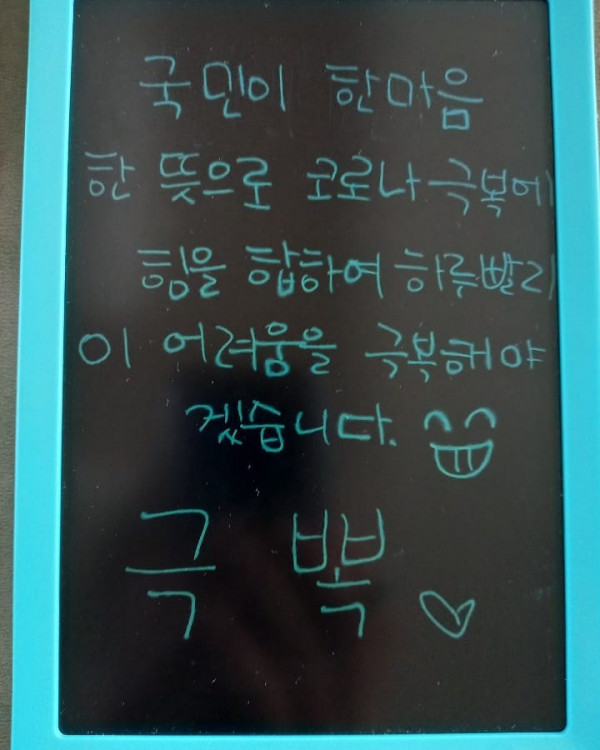 국민이 한마음
한 뜻으로 코로나 극복에
힘을 합하여 하루빨리
이 어려움을 극복해야
겠습니다.
극 뽁